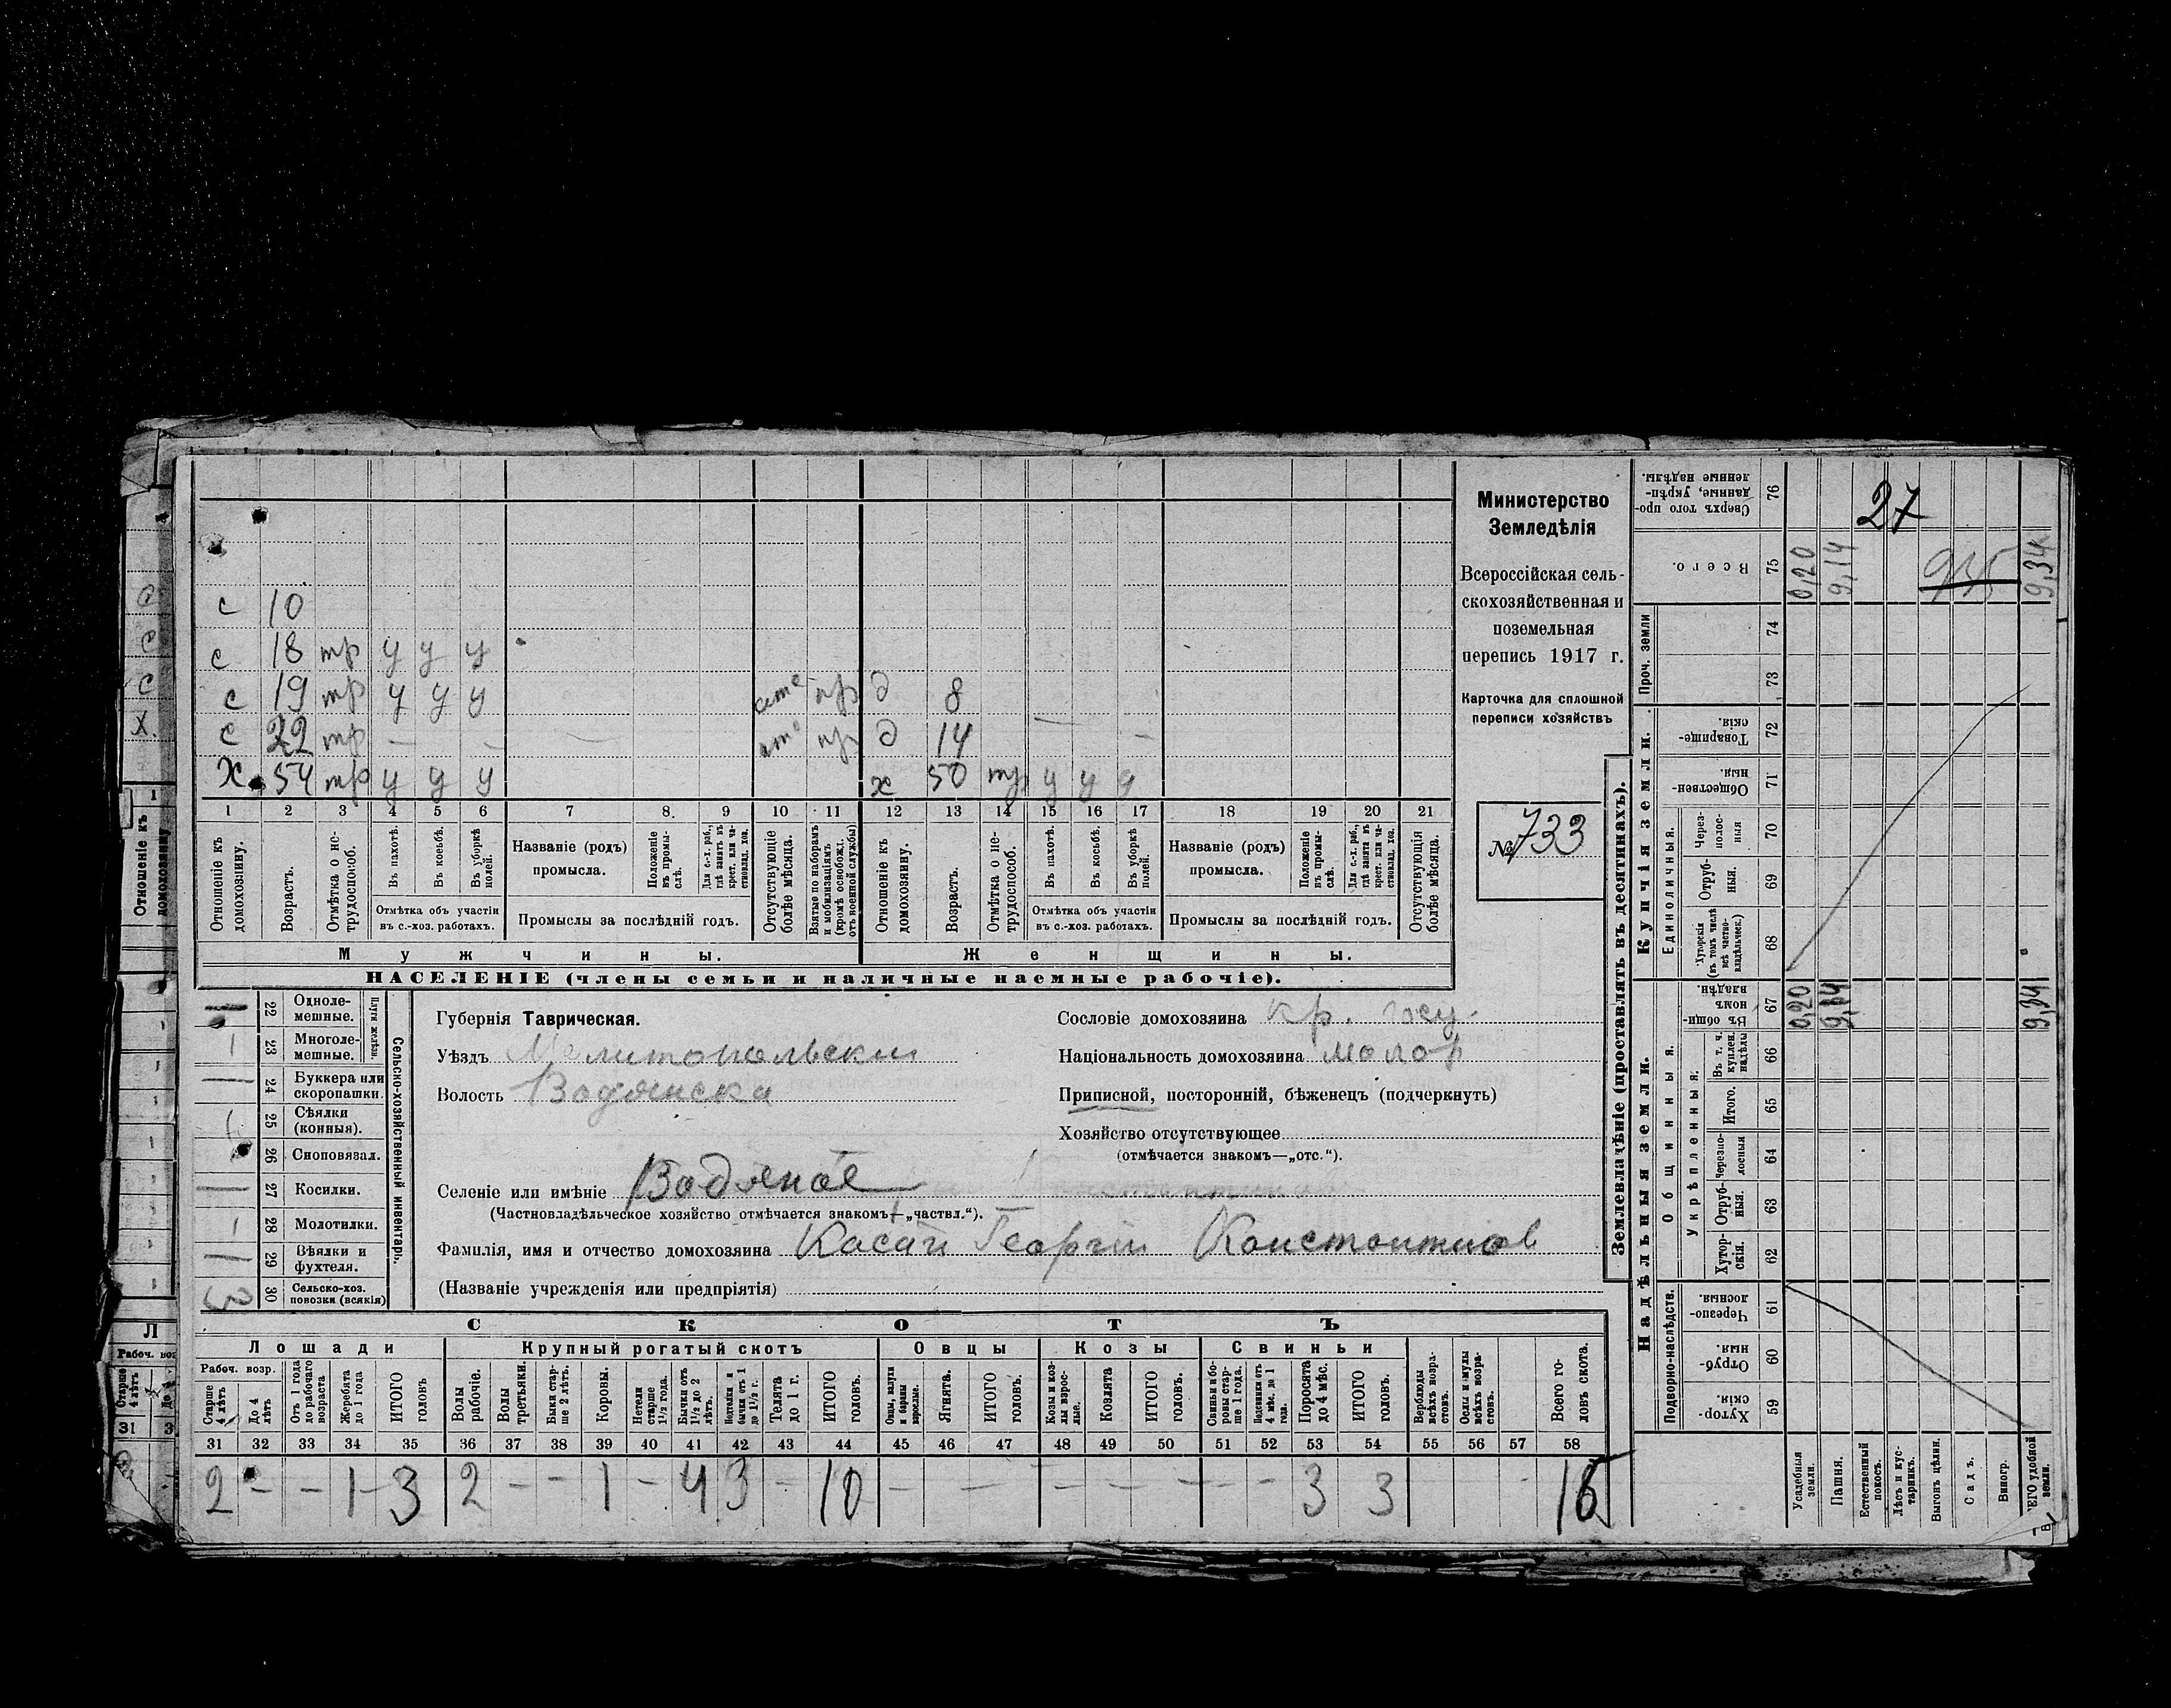 с 10
с 18 тр у у у
с 19 тр у у у пр д 8
с 22 тр — — — пр д 14 — —
х 54 тр у у у х 50 тр у у у
1 2 3 4 5 6 7 8. 9 10 11 12 13 14 15 16 17 18 19 20 21
Отношеніе къ домохозяину.
Возрастъ.
Отмѣтка о нетрудоспособ.
Въ пахотѣ.
Въ косьбѣ.
Въ уборкѣ полей.
Отмѣтка объ участіи
въ с.-хоз. работахъ.
Названіе (родъ)
промысла.
Положеніе въ промыслѣ.
Для с.-х. раб., гдѣ занятъ въ крест. или частновлад. хоз.
Промыслы за послѣдній годъ.
Отсутствующіе болѣе мѣсяца.
Взятые по наборамъ и мобилизаціямъ (кромѣ освобожд. отъ военной службы)
Отношеніе къ домохозяину.
Возрастъ.
Отмѣтка о нетрудоспособ.
Въ пахотѣ.
Въ косьбѣ.
Въ уборкѣ полей.
Отмѣтка объ участіи
въ с.-хоз. работахъ.
Названіе (родъ)
промысла.
Положеніе въ промыслѣ.
Для с.-х. раб., гдѣ занята въ крест. или частновлад. хоз.
Промыслы за послѣдній годъ.
Отсутствующія болѣе мѣсяца.
Мужчины. Женщины.
НАСЕЛЕНІЕ (члены семьи и наличные наемные рабочіе).
Министерство
Земледѣлія
Всероссійская сель-
скохозяйственная и
поземельная
перепись 1917 г.
Карточка для сплошной
переписи хозяйствъ
№ 733
— 22 Одноле-
мешные.
1 23 Многоле-
мешные.
Плуги желѣзн.
— 24 Буккера или
скоропашки.
1 25 Сѣялки
(конныя).
26 Сноповязал.
— 27 Косилки.
1 28 Молотилки.
— 29 Вѣялки и
фухтеля.
30 Сельско-хоз.
повозки (всякія)
Сельско-хозяйственный инвентарь.
Губернія Таврическая.
Уѣздъ Мелитопольский
Волость Водянска
Сословіе домохозяина кр. госу.
Національность домохозяина малор
Приписной, посторонній, бѣженецъ (подчеркнуть)
Хозяйство отсутствующее
(отмѣчается знакомъ—„отс.“).
Селеніе или имѣніе Водяное
(Частновладѣльческое хозяйство отмѣчается знакомъ—„частвл.“).
Фамилія, имя и отчество домохозяина Касай Георгий Константинов
(Названіе учрежденія или предпріятія)
СКОТЪ
Лошади Крупный рогатый скотъ Овцы Козы Свиньи
Рабоч. возр.
Старше 4 лѣтъ
До 4 лѣтъ
Отъ 1 года до рабочаго возраста
Жеребята до 1 года
ИТОГО головъ
Волы рабочіе.
Волы третьяки.
Быки старше 2 лѣтъ.
Коровы.
Нетели старше 1½ года.
Бычки отъ 1½ до 2 лѣтъ.
бычки отъ 1 до 1½ г.
Телята до 1 г.
ИТОГО головъ.
Овцы, валухи и бараны взрослые.
Ягнята.
ИТОГО головъ.
Козы и козлы взрослые.
Козлята
ИТОГО головъ.
Свиньи и боровы старше 1 года.
Подсвинки отъ 4 мѣс. до 1 года.
Поросята до 4 мѣс.
ИТОГО головъ.
Верблюды всѣхъ возрастовъ.
Ослы и мулы всѣхъ возрастовъ.
Всего головъ скота.
31 32 33 34 35 36 37 38 39 40 41 42 43 44 45 46 47 48 49 50 51 52 53 54 55 56 57 58
2 - - 1 3 2 - - 1 - 4 3 - 10 - - - - - - - - 3 3 16
Землевладѣніе (проставлять въ десятинахъ).
Надѣльныя земли. Купчія земли. Проч. земли
Подворно-наслѣдств. Общинныя. Укрѣпленныя. Единоличныя.
Сверхъ того проданные, укрѣпленные надѣлы. 76 27
Всего. 75 0,20 9,14 935 9,34
74
73
Товарищескія. 72
Общественныя. 71
Черезполосныя 70
Отрубныя. 69
Хуторскія (въ томъ числѣ всѣ частновладѣльческ.) 68
Въ общинномъ владѣн. 67 0,20 9,14 9,34
Въ т. ч. куплен. надѣлы 66
Итого. 65
Черезполосныя 64
Отрубныя. 63
Хуторскія. 62
Черезполосныя. 61
Отрубныя. 60
Хуторскія. 59
Усадебныя земли.
Пашня.
Естественный покосъ.
Лѣсъ и кустарникъ.
Выгонъ цѣлин.
Садъ.
Виногр.
ЕГО удобной земли.